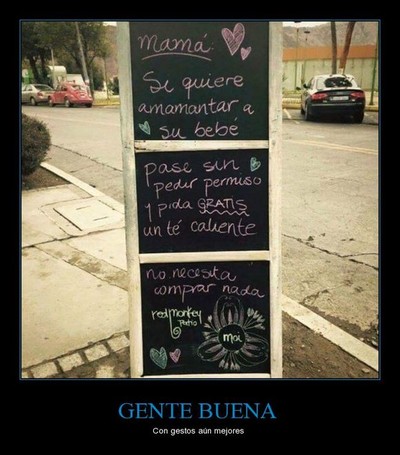 mamá:
Si quiere
amamantar a
su bebé
pase sin
pedir permiso
y pida GRATIS
un té caliente
no necesita
comprar nada
redmonkey
Patio
moi
GENTE BUENA
Con gestos aún mejores